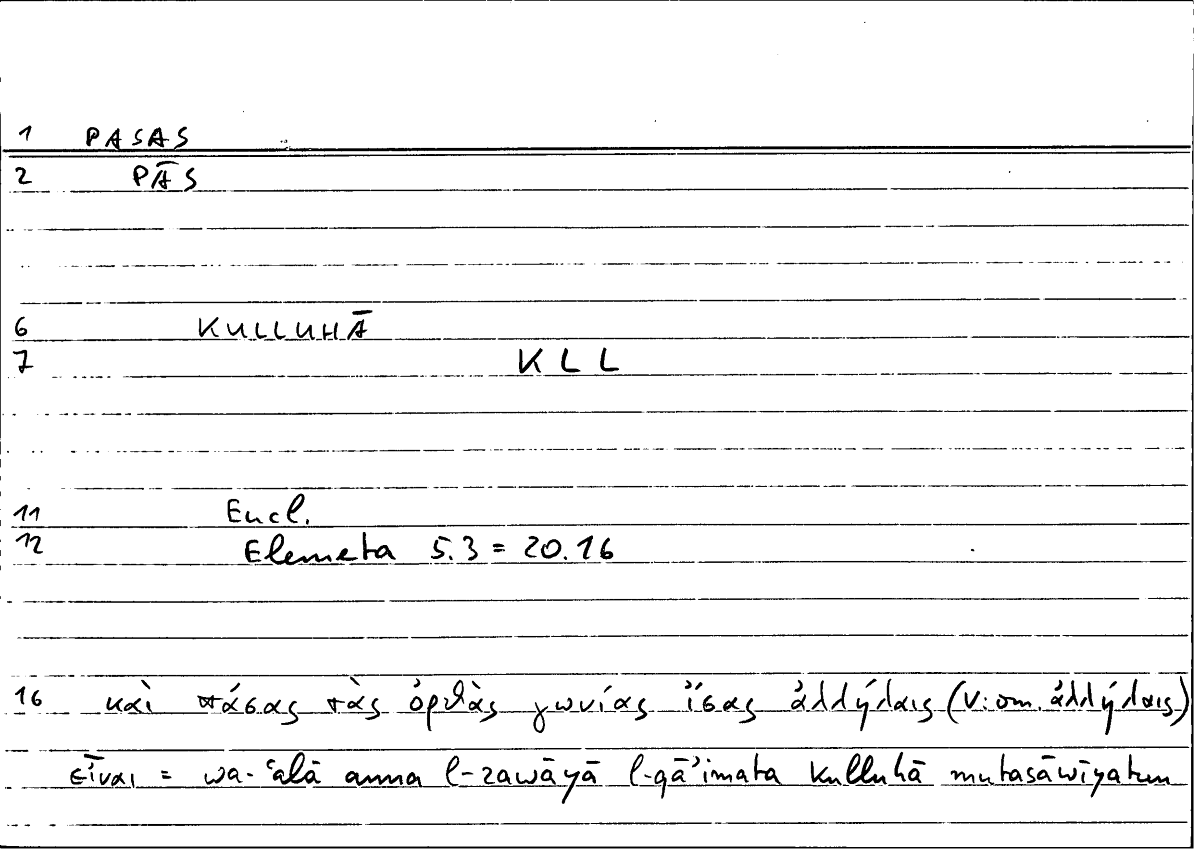 1 PASAS
2 PĀS
6 KULLUHĀ
7 KLL
11 Eucl.
12 Elemeta 5.3 = 20.16
16 καὶ πάσας τὰς ὀρθὰς γωνίας ἴσας ἀλλήλαις (V: om. ἀλλήλαις)
εἶναι = wa-ʿalā anna l-zawāyā l-qāʾimata kulluhā mutasāwiyatun